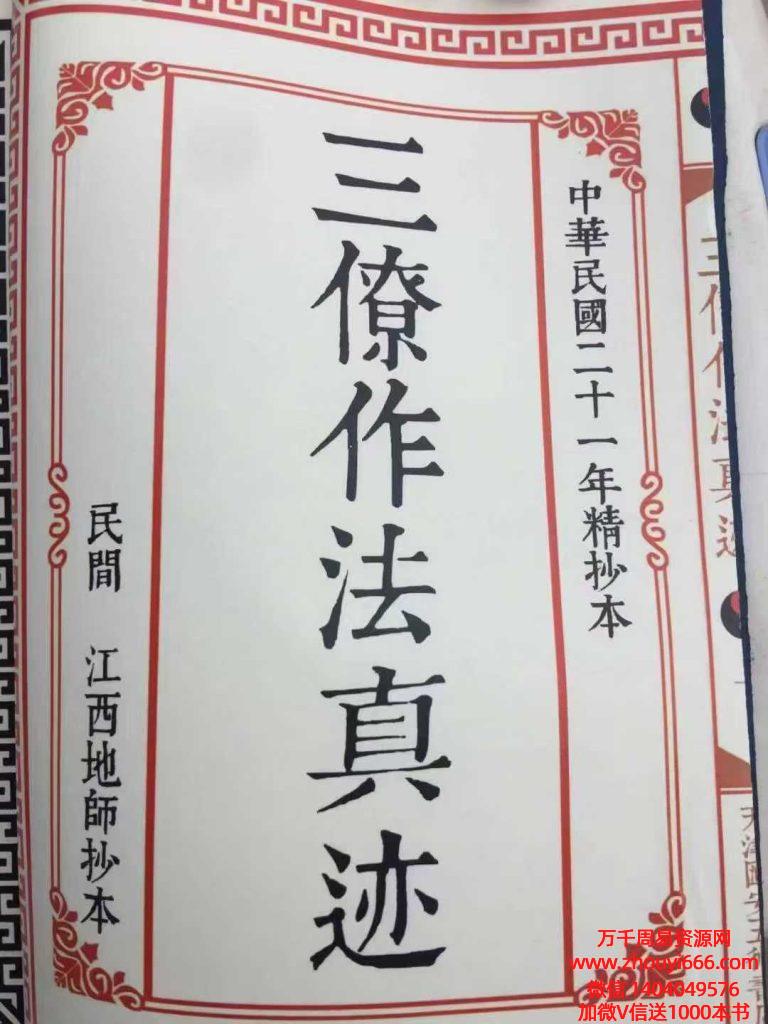 中華民國二十一年精抄本
三僚作法真迹
民間 江西地師抄本
三僚作法真迹
万千周易资源网
www.zhouyi666.com
微信 1404049576
加微V信送1000本书